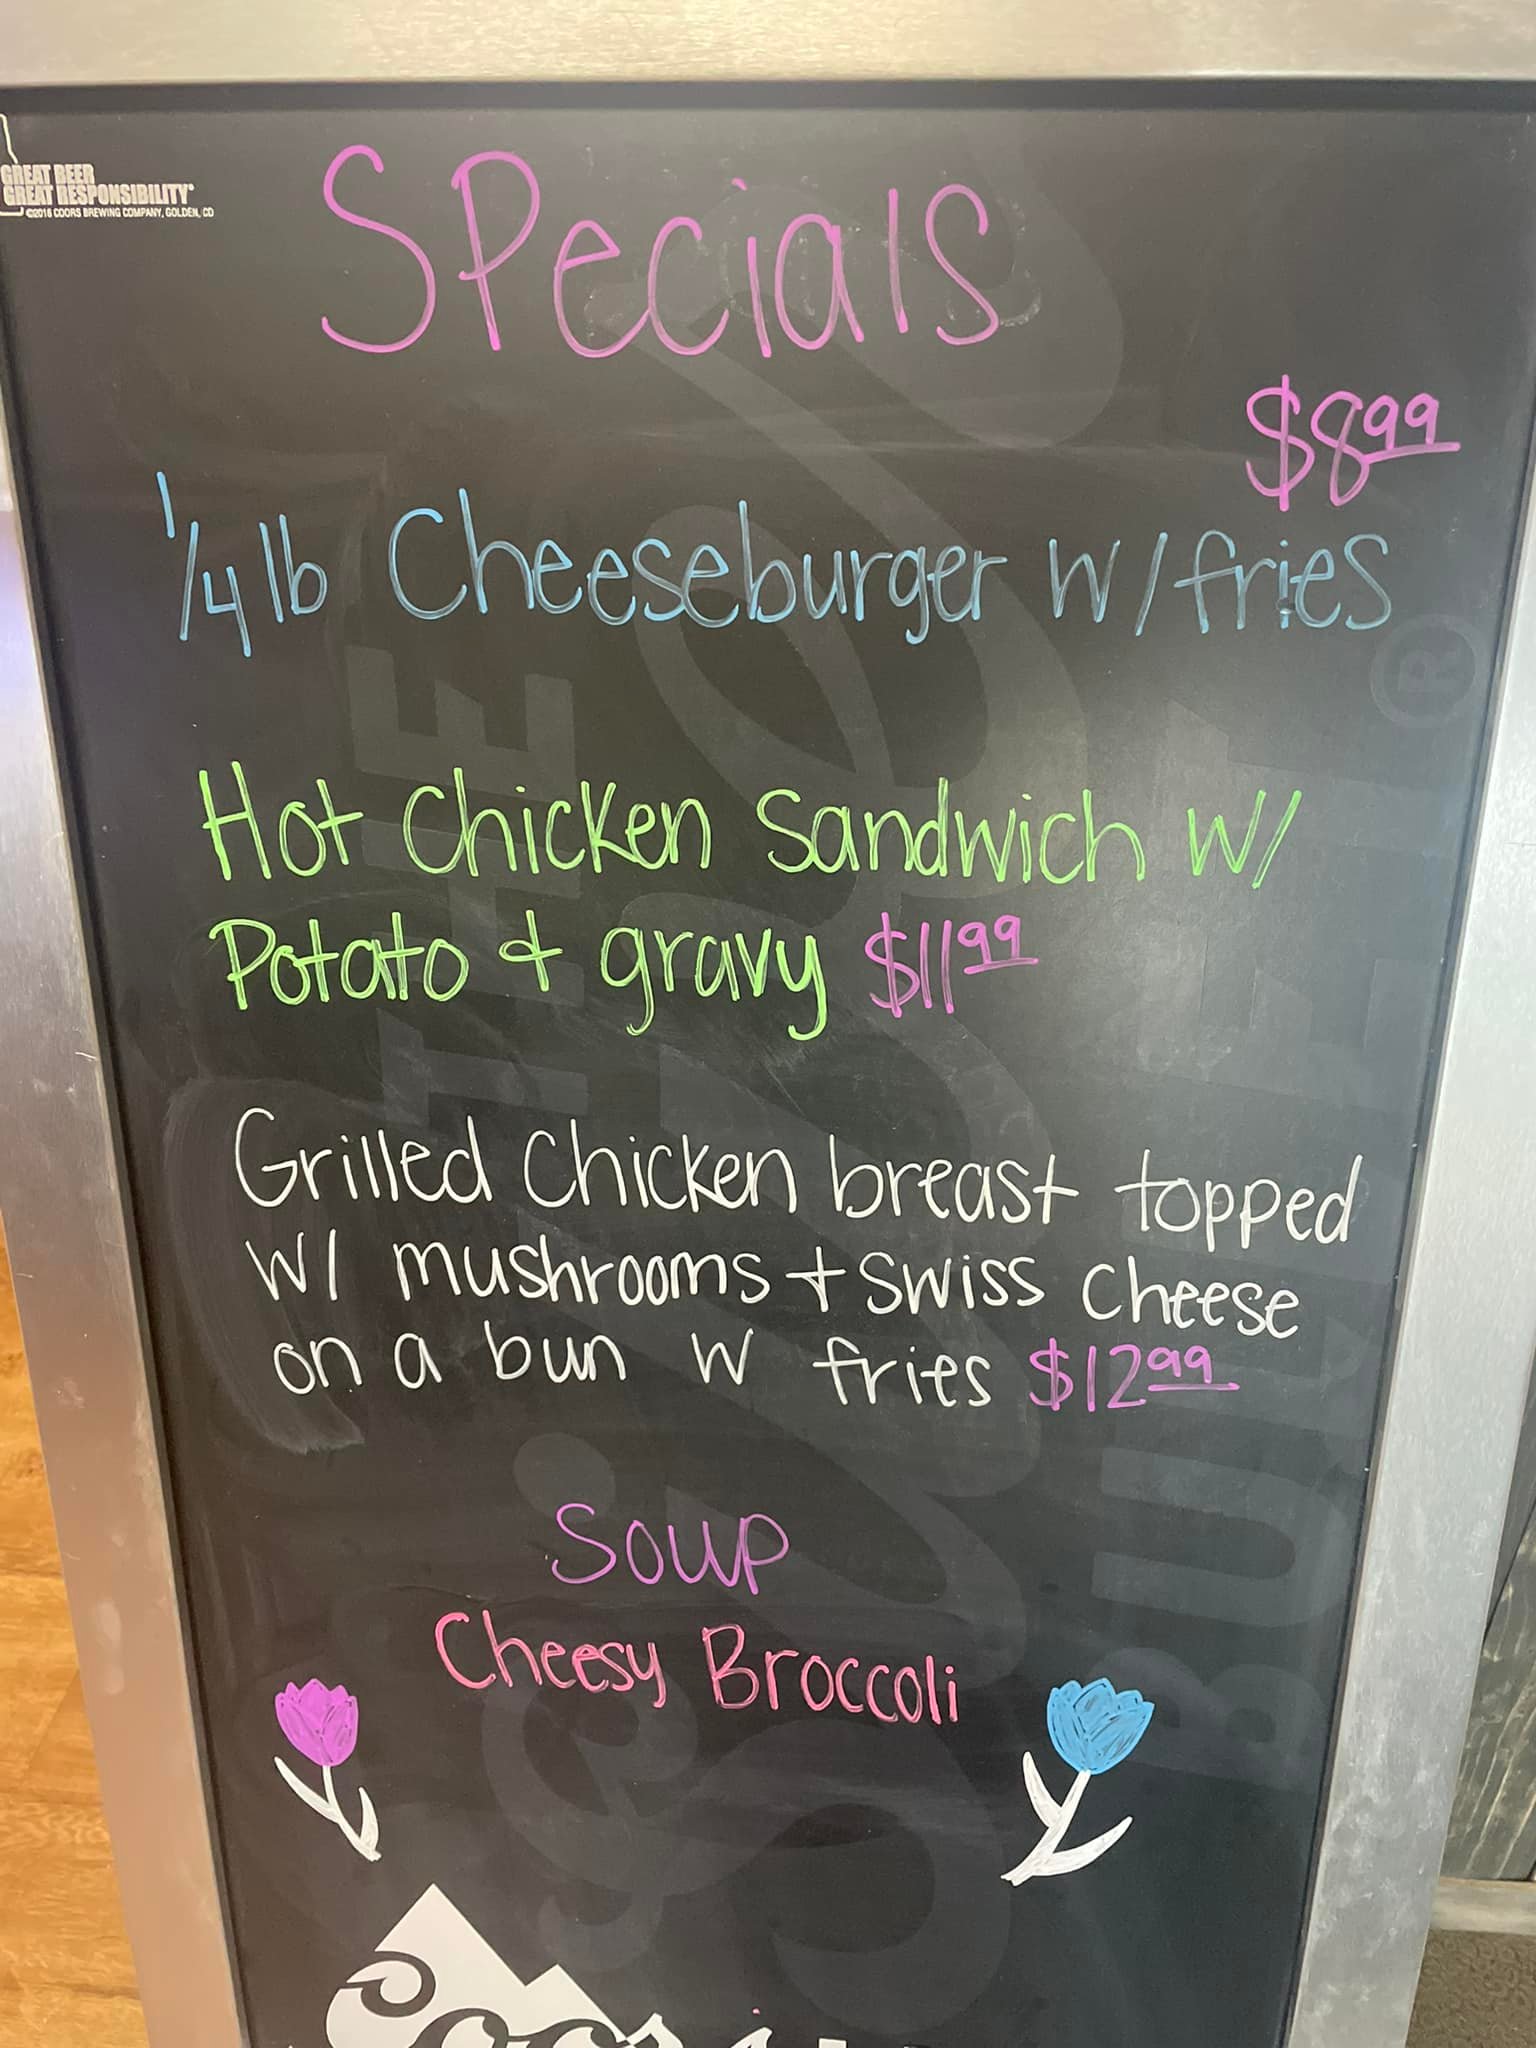 GREAT BEER
GREAT RESPONSIBILITY®
©2016 COORS BREWING COMPANY, GOLDEN, CO
Specials
$8.99
1/4 lb Cheeseburger w/ fries
Hot Chicken Sandwich w/
Potato + gravy $11.99
Grilled Chicken breast topped
w/ mushrooms + swiss cheese
on a bun w fries $12.99
Soup
Cheesy Broccoli
Coors